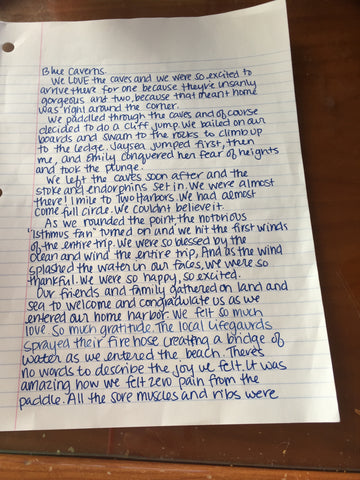 Blue Caverns.
We LOVE the caves and we were so excited to
arrive there for one because they're insanly
gorgeous and two, because that meant home
was right around the corner.
We paddled through the caves and of course
decided to do a cliff jump. We bailed on our
boards and swam to the rocks to climb up
to the ledge. Jaysea jumped first, then
me, and Emily conquered her fear of heights
and took the plunge.
We left the caves soon after and the
stoke and endorphins set in. We were almost
there! 1 mile to Two Harbors. We had almost
come full circle. We couldnt believe it.
As we rounded the point, the notorious
"Isthmus fan" turned on and we hit the first winds
of the entire trip. We were so blessed by the
ocean and wind the entire trip, And as the wind
splashed the water in our faces, we were so
thankful. We were so happy, so excited.
Our friends and family gathered on land and
sea to welcome and congradulate us as we
entered our home harbor. We felt so much
love. So much gratitude. The local lifegaurds
sprayed their fire hose creating a bridge of
water as we entered the beach. There's
no words to describe the joy we felt. It was
amazing how we felt zero pain from the
paddle. All the sore muscles and ribs were